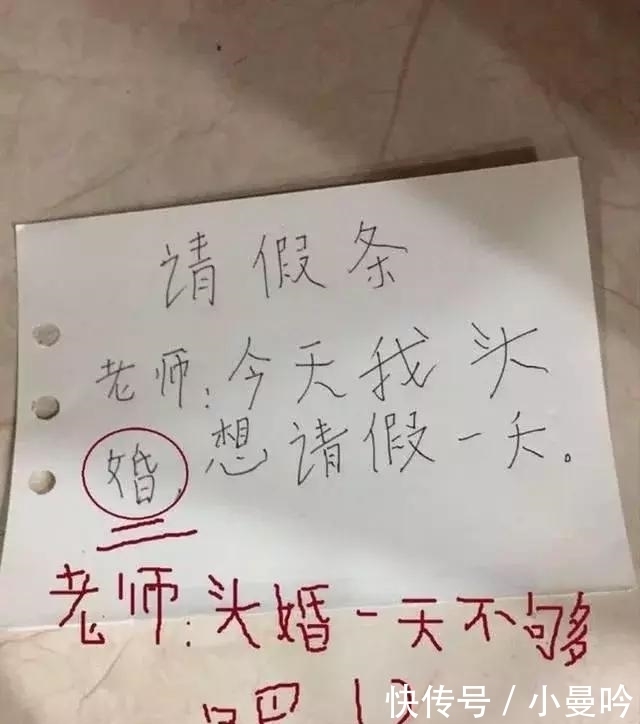 请假条
老师:今天我头
婚,想请假一天。
老师:头婚一天不够
吧!?
快传号/小曼吟